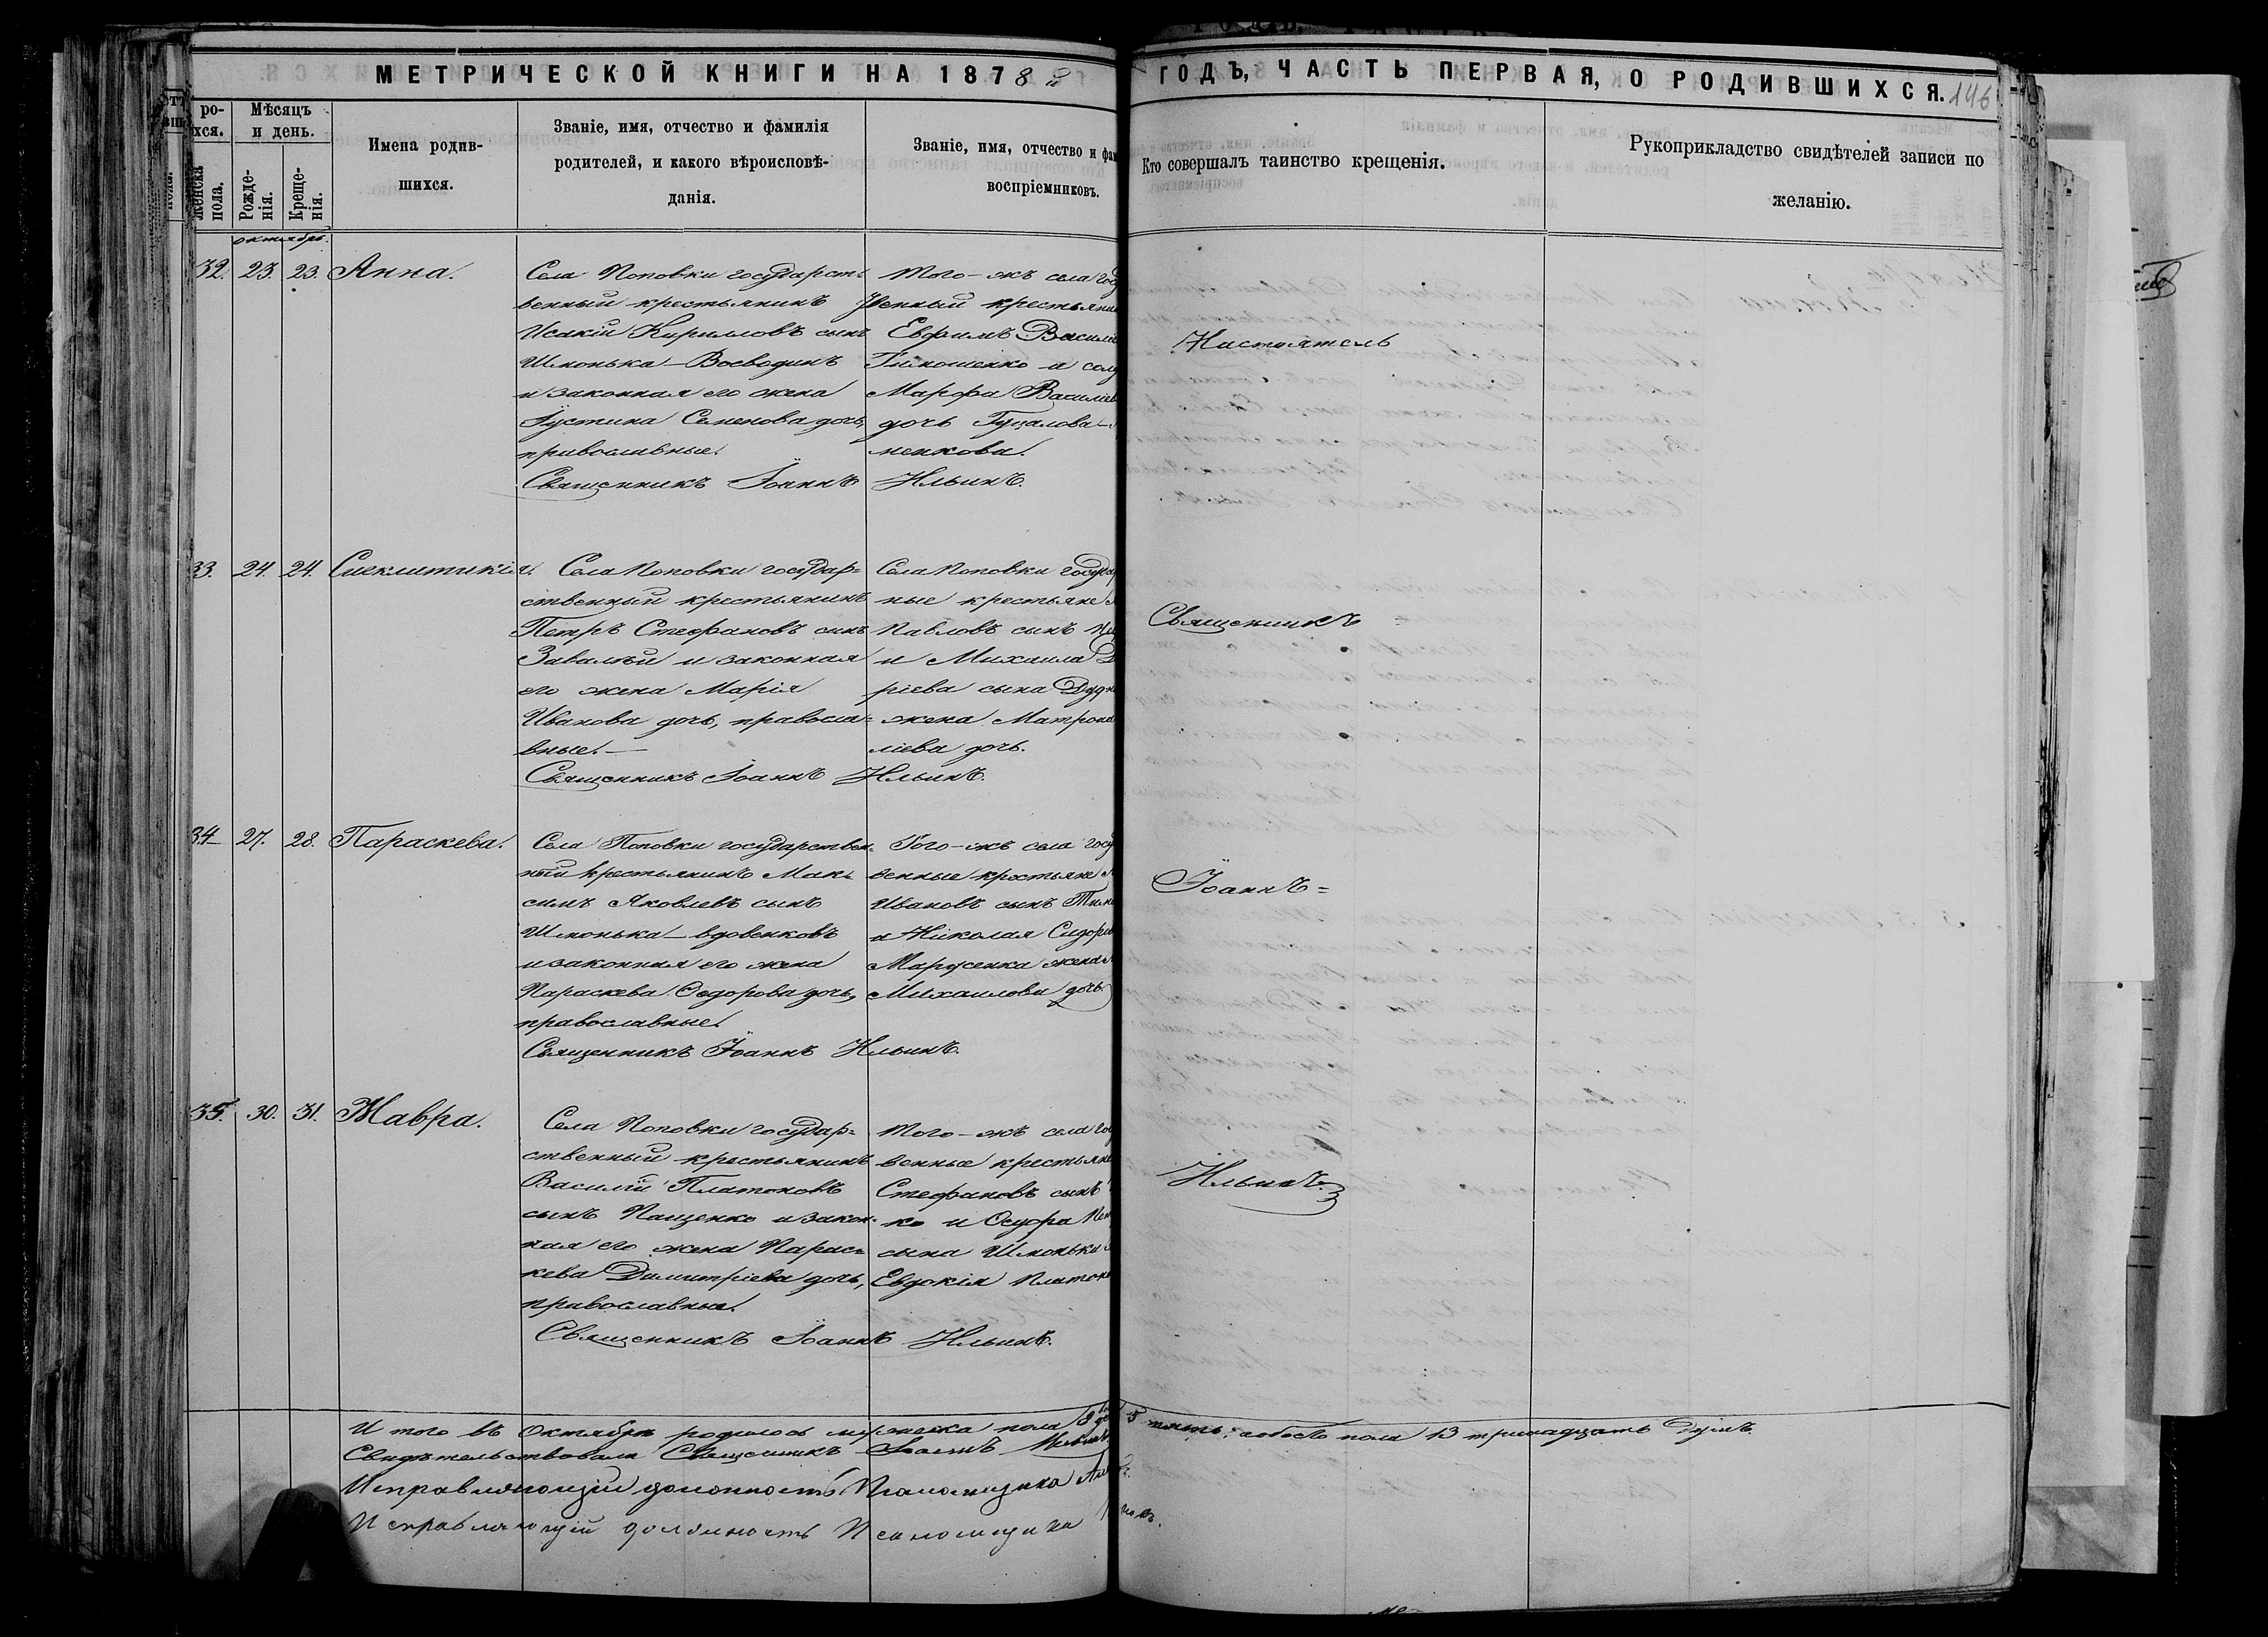 МЕТРИЧЕСКОЙ КНИГИ НА 1878
ГОДЪ, ЧАСТЬ ПЕРВАЯ, О РОДИВШИХСЯ. 146
ро-
хся.
женска
пола.
Мѣсяцъ
и день.
Рожде-
нія.
Креще-
нія.
Имена родив-
шихся.
Званіе, имя, отчество и фамилія
родителей, и какого вѣроисповѣ-
данія.
Званіе, имя, отчество и фам
воспріемниковъ.
Кто совершалъ таинство крещенія.
Рукоприкладство свидѣтелей записи по
желанію.
октябрь.
32. 23. 23. Анна.
Села Поповки государст-
венный крестьянинъ
Исакій Кириловъ сынъ
Шмонька-Воеводинъ
и законная его жена
Іустина Семенова дочь,
православные.
Того-жъ села гос
венный крестьянин
Евфимъ Васили
Тимошенко и
Марфа Василіев
дочь Гуцалова-
ненкова.
Священникъ Іоаннъ Ильинъ.
Настоятель
33. 24. 24. Синклитикія.
Села Поповки государ-
ственный крестьянинъ
Петръ Стефановъ сынъ
Завалъй и законная
его жена Марія
Иванова дочь, правосла-
вные.
Села Поповки госуда
ные крестьяне
Павловъ сынъ
и Михаила Д
ріева сына Дудн
жена Матрона
ліева дочь.
Священникъ Іоаннъ Ильинъ.
Священникъ
34 27. 28. Параскева.
Села Поповки государствен-
ный крестьянинъ Мак-
симъ Яковлевъ сынъ
Шмонька-вдовенковъ
и законная его жена
Параскева Ѳедорова дочь,
православные.
Того-жъ села госу
венные крестьяне
Ивановъ сынъ Тим
и Николая Сидоро
Марченка жена
Михаилова дочь.
Священникъ Іоаннъ Ильинъ.
Іоаннъ
35. 30. 31. Мавра.
Села Поповки государ-
ственный крестьянинъ
Василій Платоновъ
сынъ Пащенко и закон-
ная его жена Парас-
кева Димитріева дочь,
православные.
Того-жъ села гос
венные крестьяне
Стефановъ сынъ
ко и
сына Шмоньки
Евдокія Платон
Священникъ Іоаннъ Ильинъ.
Ильинъ
И того въ Октябрѣ родилось мужеска пола 8 5 пять, обоего пола 13 тринадцать душъ.
Свидѣтельствовали Священникъ Іоаннъ Ильинъ
Исправляющій должность Псаломщика
Исправляющій должность Псаломщика